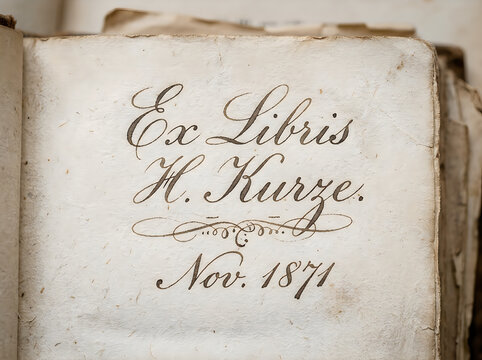 Ex Libris
H. Kurze.
Nov. 1871